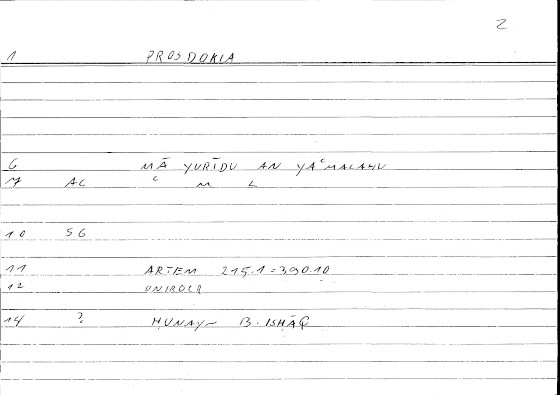 2
1 PROSDOKIA
6 MĀ YURĪDU AN YAʿMALAHU
7 AC ʿ M L
10 56
11 ARTEM 215.1 = 390.10
12 ONIROCR
14 ? HUNAYN B. ISHĀQ